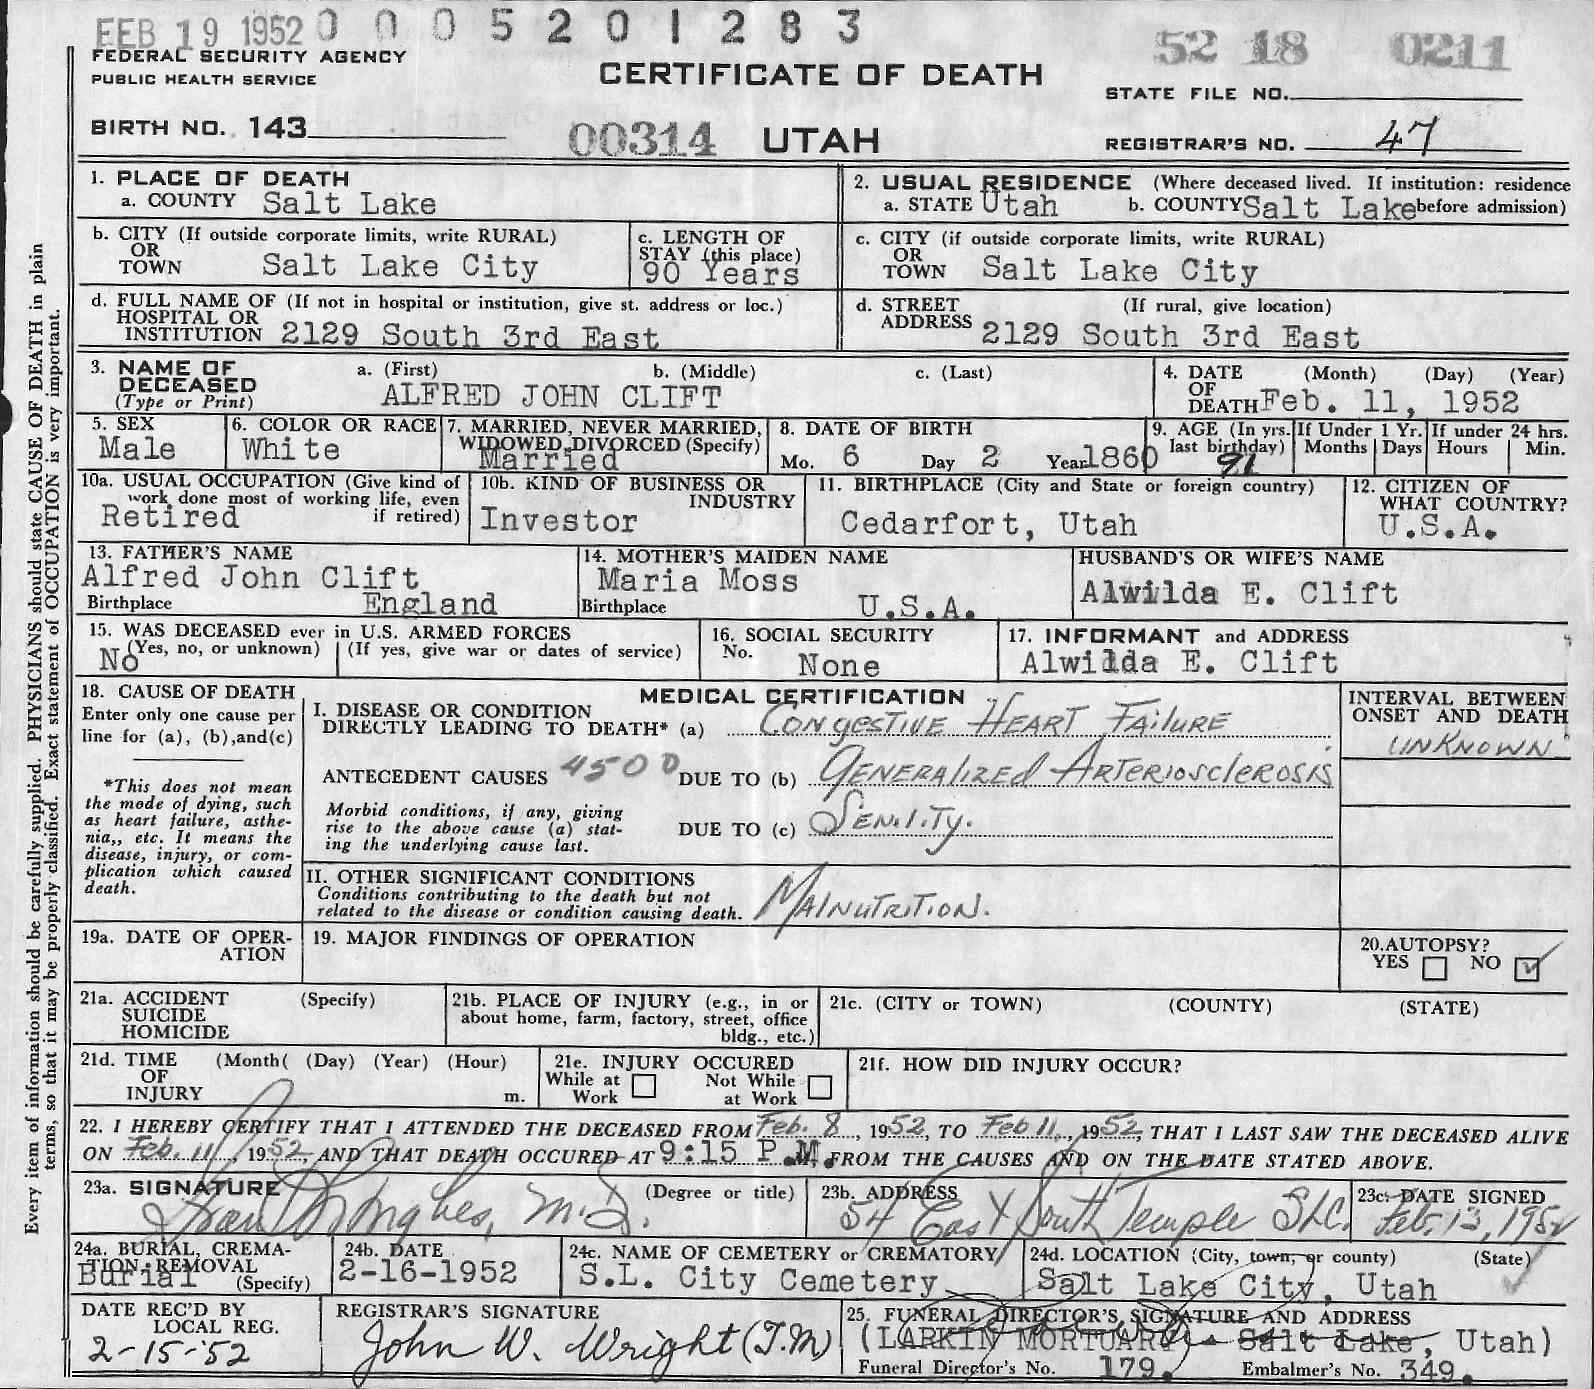 FEB 19 1952 0 0 0 5 2 0 1 2 8 3
52 18 0211
FEDERAL SECURITY AGENCY
PUBLIC HEALTH SERVICE
CERTIFICATE OF DEATH
STATE FILE NO.
BIRTH NO. 143
00314 UTAH
REGISTRAR'S NO. 47
1. PLACE OF DEATH
a. COUNTY Salt Lake
2. USUAL RESIDENCE (Where deceased lived. If institution: residence
a. STATE Utah b. COUNTY Salt Lake before admission)
b. CITY (If outside corporate limits, write RURAL)
OR
TOWN Salt Lake City
c. LENGTH OF
STAY (this place)
90 Years
c. CITY (if outside corporate limits, write RURAL)
OR
TOWN Salt Lake City
d. FULL NAME OF (If not in hospital or institution, give st. address or loc.)
HOSPITAL OR
INSTITUTION 2129 South 3rd East
d. STREET (If rural, give location)
ADDRESS 2129 South 3rd East
3. NAME OF a. (First) b. (Middle) c. (Last)
DECEASED
(Type or Print) ALFRED JOHN CLIFT
4. DATE (Month) (Day) (Year)
OF
DEATH Feb. 11, 1952
5. SEX
Male
6. COLOR OR RACE
White
7. MARRIED, NEVER MARRIED,
WIDOWED, DIVORCED (Specify)
Married
8. DATE OF BIRTH
Mo. 6 Day 2 Year 1860
9. AGE (In yrs.
last birthday)
91
If Under 1 Yr.
Months Days
If under 24 hrs.
Hours Min.
10a. USUAL OCCUPATION (Give kind of
work done most of working life, even
if retired)
Retired
10b. KIND OF BUSINESS OR
INDUSTRY
Investor
11. BIRTHPLACE (City and State or foreign country)
Cedarfort, Utah
12. CITIZEN OF
WHAT COUNTRY?
U.S.A.
13. FATHER'S NAME
Alfred John Clift
Birthplace England
14. MOTHER'S MAIDEN NAME
Maria Moss
Birthplace U.S.A.
HUSBAND'S OR WIFE'S NAME
Alwilda E. Clift
15. WAS DECEASED ever in U.S. ARMED FORCES
(Yes, no, or unknown) (If yes, give war or dates of service)
No
16. SOCIAL SECURITY
No. None
17. INFORMANT and ADDRESS
Alwilda E. Clift
18. CAUSE OF DEATH
Enter only one cause per
line for (a), (b),and(c)
*This does not mean
the mode of dying, such
as heart failure, asthe-
nia,, etc. It means the
disease, injury, or com-
plication which caused
death.
MEDICAL CERTIFICATION
I. DISEASE OR CONDITION
DIRECTLY LEADING TO DEATH* (a) Congestive Heart Failure
ANTECEDENT CAUSES 4500 DUE TO (b) Generalized Arteriosclerosis
Morbid conditions, if any, giving
rise to the above cause (a) stat-
ing the underlying cause last.
DUE TO (c) Senility.
INTERVAL BETWEEN
ONSET AND DEATH
Unknown
II. OTHER SIGNIFICANT CONDITIONS
Conditions contributing to the death but not
related to the disease or condition causing death. Malnutrition.
19a. DATE OF OPER-
ATION
19. MAJOR FINDINGS OF OPERATION
20. AUTOPSY?
YES ☐ NO ☑
21a. ACCIDENT (Specify)
SUICIDE
HOMICIDE
21b. PLACE OF INJURY (e.g., in or
about home, farm, factory, street, office
bldg., etc.)
21c. (CITY or TOWN) (COUNTY) (STATE)
21d. TIME (Month( (Day) (Year) (Hour)
OF
INJURY m.
21e. INJURY OCCURED
While at Work ☐ Not While at Work ☐
21f. HOW DID INJURY OCCUR?
22. I HEREBY CERTIFY THAT I ATTENDED THE DECEASED FROM Feb. 8, 1952, TO Feb 11, 1952, THAT I LAST SAW THE DECEASED ALIVE
ON Feb. 11, 1952 AND THAT DEATH OCCURED AT 9:15 P.M. FROM THE CAUSES AND ON THE DATE STATED ABOVE.
23a. SIGNATURE (Degree or title)
Hughes, M.D.
23b. ADDRESS
54 East South Temple SLC.
23c. DATE SIGNED
Feb. 13, 1952
24a. BURIAL, CREMA-
TION, REMOVAL
(Specify)
Burial
24b. DATE
2-16-1952
24c. NAME OF CEMETERY or CREMATORY
S.L. City Cemetery
24d. LOCATION (City, town, or county) (State)
Salt Lake City, Utah
DATE REC'D BY
LOCAL REG.
2-15-52
REGISTRAR'S SIGNATURE
John W. Wright (T.M)
25. FUNERAL DIRECTOR'S, SIGNATURE AND ADDRESS
(LARKIN MORTUARY - Salt Lake, Utah)
Funeral Director's No. 179. Embalmer's No. 349.
Every item of information should be carefully supplied. PHYSICIANS should state CAUSE OF DEATH in plain
terms, so that it may be properly classified. Exact statement of OCCUPATION is very important.